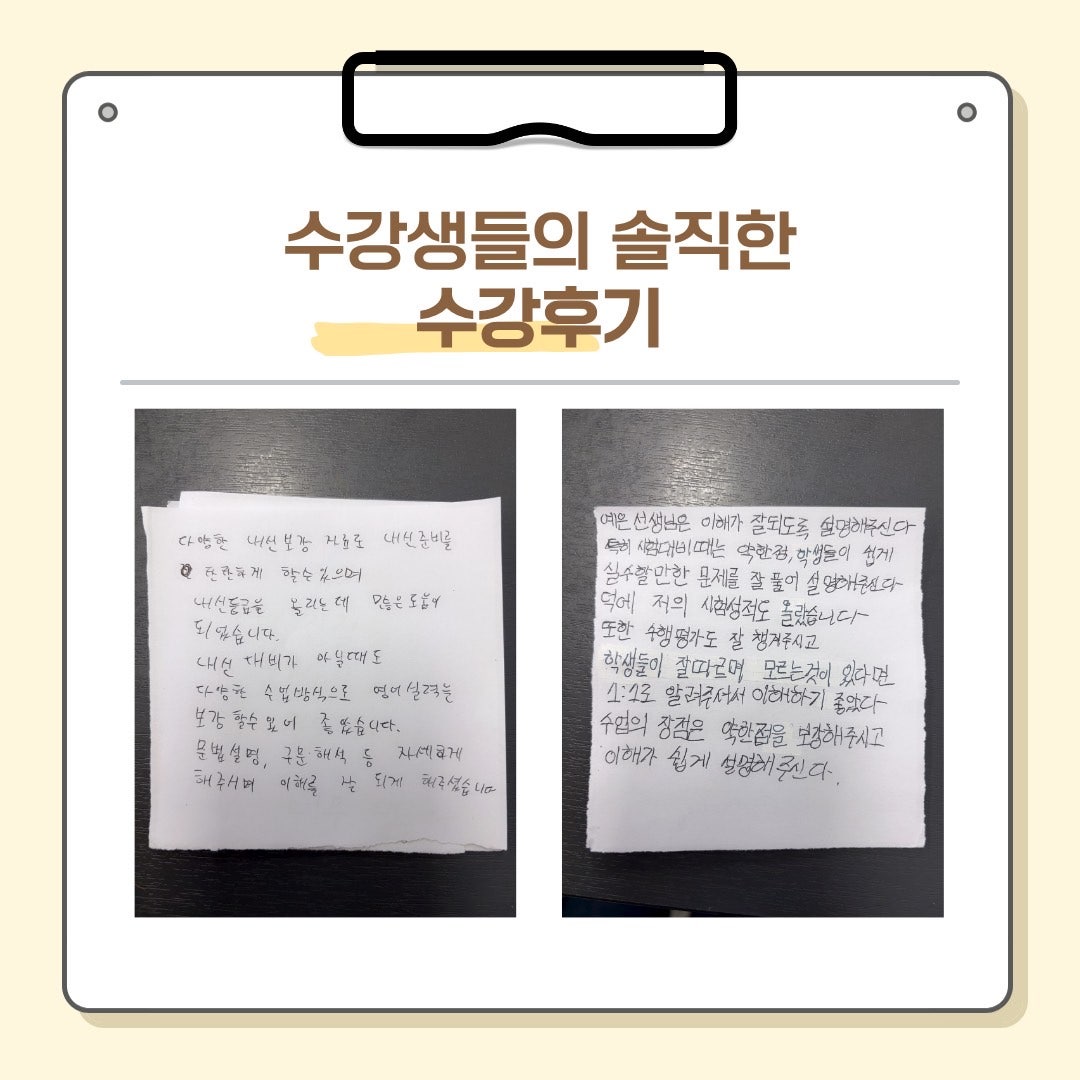 수강생들의 솔직한
수강후기
다양한 내신보강 자료로 내신준비를
탄탄하게 할수 있으며
내신등급을 올리는데 많은 도움이
되었습니다.
내신 대비가 아닐때도
다양한 수업방식으로 영어실력을
보강 할수 있어 좋았습니다.
문법설명, 구문·해석 등 자세하게
해주시며 이해를 잘 되게 해주셨습니다
예은선생님은 이해가 잘되도록 설명해주신다
특히 시험대비때는 약한점, 학생들이 쉽게
실수할만한 문제를 잘 풀어 설명해주신다
덕에 저의 시험성적도 올랐습니다
또한 수행평가도 잘 챙겨주시고
학생들이 잘따르며 모르는것이 있다면
1:1로 알려주셔서 이해하기 좋았다
수업의 장점은 약한점을 보강해주시고
이해가 쉽게 설명해주신다.